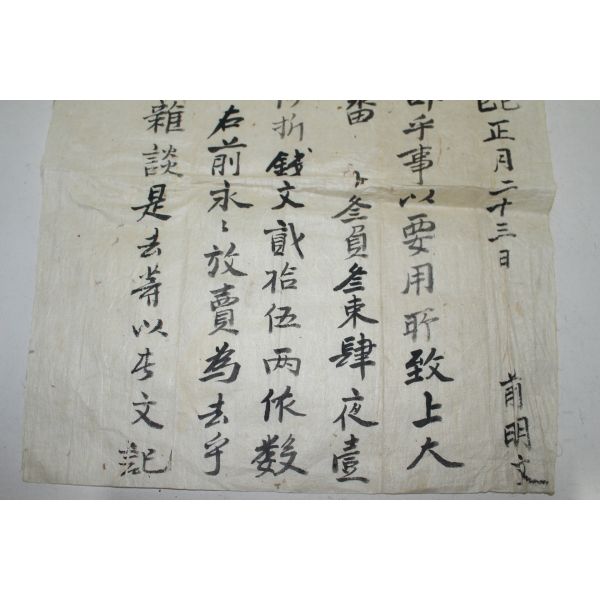 正月二十三日 前明文
乎事以要用所致上大
叄負叄束肆夜壹
折錢文貳拾伍兩依數
右前永〻放賣為去乎
雜談是去等以此文記